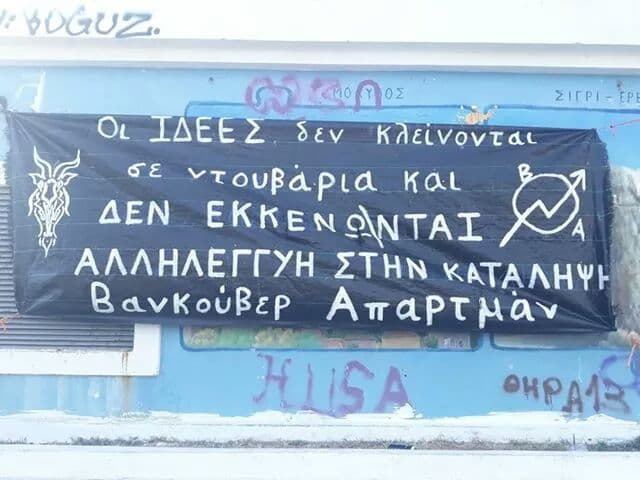 BOGUZ.
ΜΟΛΥΒΟΣ
ΣΙΓΡΙ - ΕΡΕ
Οι ΙΔΕΕΣ δεν κλείνονται
σε ντουβάρια και
ΔΕΝ ΕΚΚΕΝΩΝΤΑΙ
ΑΛΛΗΛΕΓΓΥΗ ΣΤΗΝ ΚΑΤΑΛΗΨΗ
Βανκούβερ Απαρτμάν
B
A
HUSA
ΘΗΡΑ13